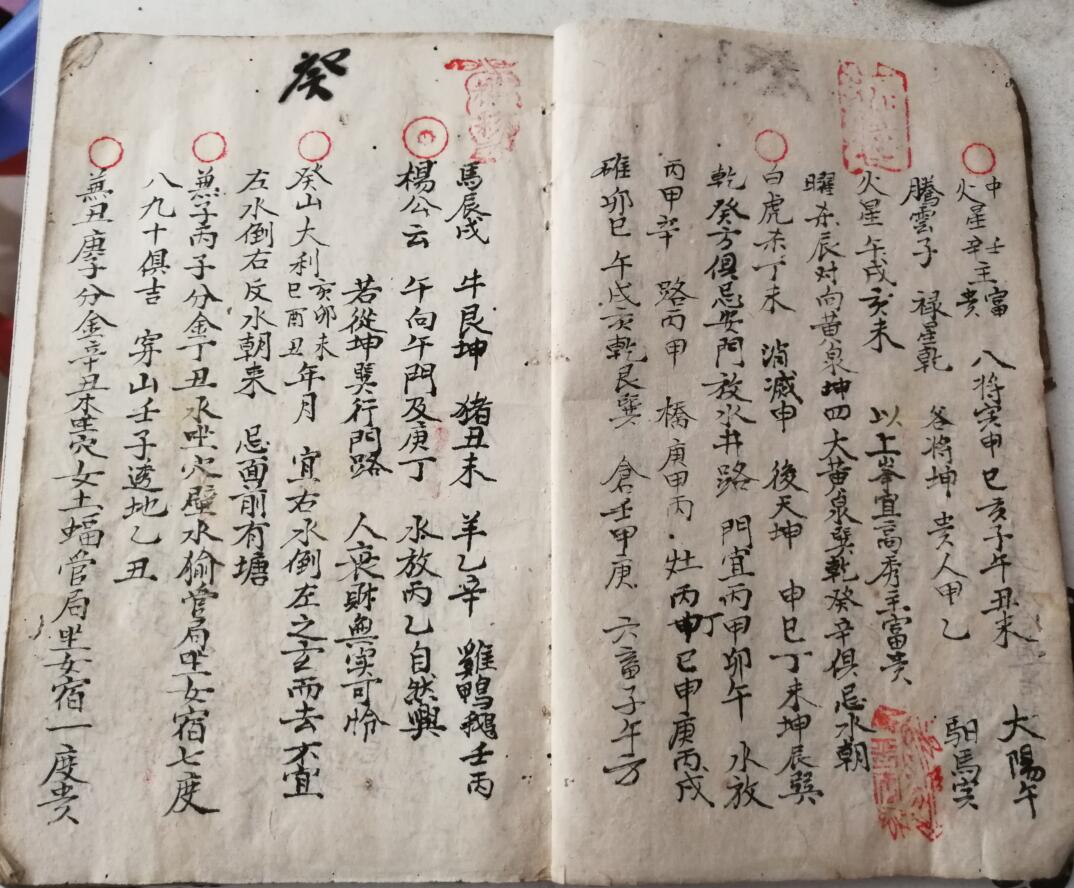 中火星壬辛主富贵　八将寅甲巳亥子午丑未　大陽午
騰雲子　禄星乾　谷将坤　贵人甲乙　馹馬寅
火星午戌亥未　以上峯宜高秀主富贵
曜杀辰对向黃泉坤四大黄泉巽乾癸辛俱忌水朝
白虎杀丁未　消滅申　後天坤　申巳丁未坤辰巽
乾癸方俱忌安門放水井路　門宜丙甲卯午　水放
丙甲辛　路丙甲　橋庚甲丙　灶丙申丁巳申庚丙戌
碓卯巳午戌亥乾艮巽　倉壬甲庚　六畜子午方
癸
馬辰戌　牛艮坤　猪丑未　羊乙辛　雞鴨鵝壬丙
楊公云　午向午門及庚丁　水放丙乙自然興
若從坤巽行門路　人衰財無实可怜
癸山大利亥卯未巳酉丑年月　宜右水倒左之玄而去不宜
左水倒右反水朝来　忌面前有塘
兼子丙子分金丁丑水坐穴壁水㺄管局坐女宿七度
八九十俱吉　穿山壬子透地乙丑
兼丑庚子分金辛丑木坐穴女土蝠管局坐女宿一度贵